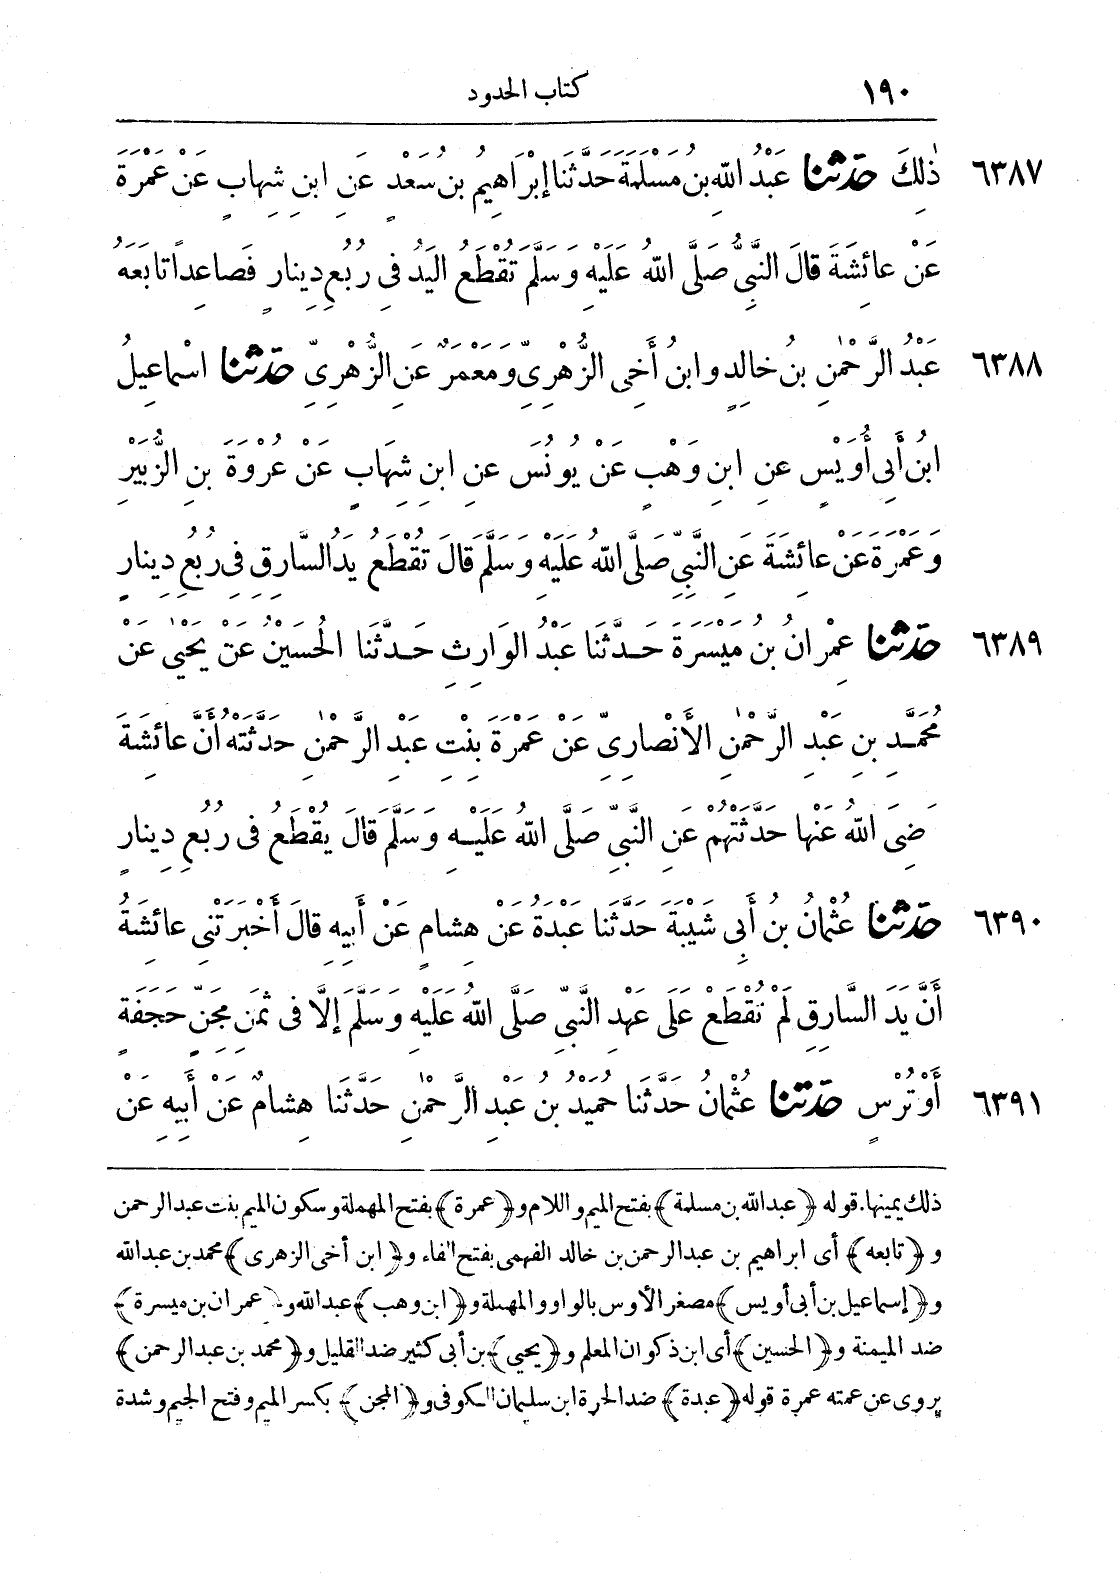 ١٩٠ كتاب الحدود
٦٣٨٧ ذٰلِكَ حَدَّثَنَا عَبْدُ اللَّهِ بنُ مَسْلَمَةَ حَدَّثَنَا إِبْرَاهِيمُ بنُ سَعْدٍ عَنِ ابنِ شِهَابٍ عَنْ عَمْرَةَ
عَنْ عَائِشَةَ قَالَ النَّبِيُّ صَلَّى اللَّهُ عَلَيْهِ وَسَلَّمَ تُقْطَعُ اليَدُ فِي رُبُعِ دِينَارٍ فَصَاعِداً تَابَعَهُ
٦٣٨٨ عَبْدُ الرَّحْمٰنِ بنُ خَالِدٍ وابنُ أَخِي الزُّهْرِيِّ وَمَعْمَرٌ عَنِ الزُّهْرِيِّ حَدَّثَنَا اسْمَاعِيلُ
ابنُ أَبِي أُوَيْسٍ عَنِ ابنِ وَهْبٍ عَنْ يُونُسَ عَنِ ابنِ شِهَابٍ عَنْ عُرْوَةَ بنِ الزُّبَيْرِ
وَعَمْرَةَ عَنْ عَائِشَةَ عَنِ النَّبِيِّ صَلَّى اللَّهُ عَلَيْهِ وَسَلَّمَ قَالَ تُقْطَعُ يَدُ السَّارِقِ فِي رُبُعِ دِينَارٍ
٦٣٨٩ حَدَّثَنَا عِمْرَانُ بنُ مَيْسَرَةَ حَدَّثَنَا عَبْدُ الوَارِثِ حَدَّثَنَا الحُسَيْنُ عَنْ يَحْيٰى عَنْ
مُحَمَّدِ بنِ عَبْدِ الرَّحْمٰنِ الأَنْصَارِيِّ عَنْ عَمْرَةَ بِنْتِ عَبْدِ الرَّحْمٰنِ حَدَّثَتْهُ أَنَّ عَائِشَةَ
ضِيَ اللَّهُ عَنْهَا حَدَّثَتْهُمْ عَنِ النَّبِيِّ صَلَّى اللَّهُ عَلَيْهِ وَسَلَّمَ قَالَ يُقْطَعُ فِي رُبُعِ دِينَارٍ
٦٣٩٠ حَدَّثَنَا عُثْمَانُ بنُ أَبِي شَيْبَةَ حَدَّثَنَا عَبْدَةُ عَنْ هِشَامٍ عَنْ أَبِيهِ قَالَ أَخْبَرَتْنِي عَائِشَةُ
أَنَّ يَدَ السَّارِقِ لَمْ تُقْطَعْ عَلَى عَهْدِ النَّبِيِّ صَلَّى اللَّهُ عَلَيْهِ وَسَلَّمَ إِلَّا فِي ثَمَنِ مِجَنٍّ حَجَفَةٍ
٦٣٩١ أَوْ تُرْسٍ حَدَّثَنَا عُثْمَانُ حَدَّثَنَا حُمَيْدُ بنُ عَبْدِ الرَّحْمٰنِ حَدَّثَنَا هِشَامٌ عَنْ أَبِيهِ عَنْ
ذلك يمينها. قوله ﴿عبد الله بن مسلمة﴾ بفتح الميم واللام و﴿عمرة﴾ بفتح المهملة وسكون الميم بنت عبد الرحمن
و﴿تابعه﴾ أى ابراهيم بن عبد الرحمن بن خالد الفهمى بفتح الفاء و﴿ابن أخى الزهرى﴾ محمد بن عبد الله
و﴿إسماعيل بن أبى أويس﴾ مصغر الأوس بالواو والمهملة و﴿ابن وهب﴾ عبد الله و﴿عمران بن ميسرة﴾
ضد الميمنة و﴿الحسين﴾ أى ابن ذكوان المعلم و﴿يحيى﴾ بن أبى كثير ضد القليل و﴿محمد بن عبد الرحمن﴾
يروى عن عمته عمرة قوله ﴿عبدة﴾ ضد الحرة ابن سليمان الكوفى و﴿المجن﴾ بكسر الميم وفتح الجيم وشدة